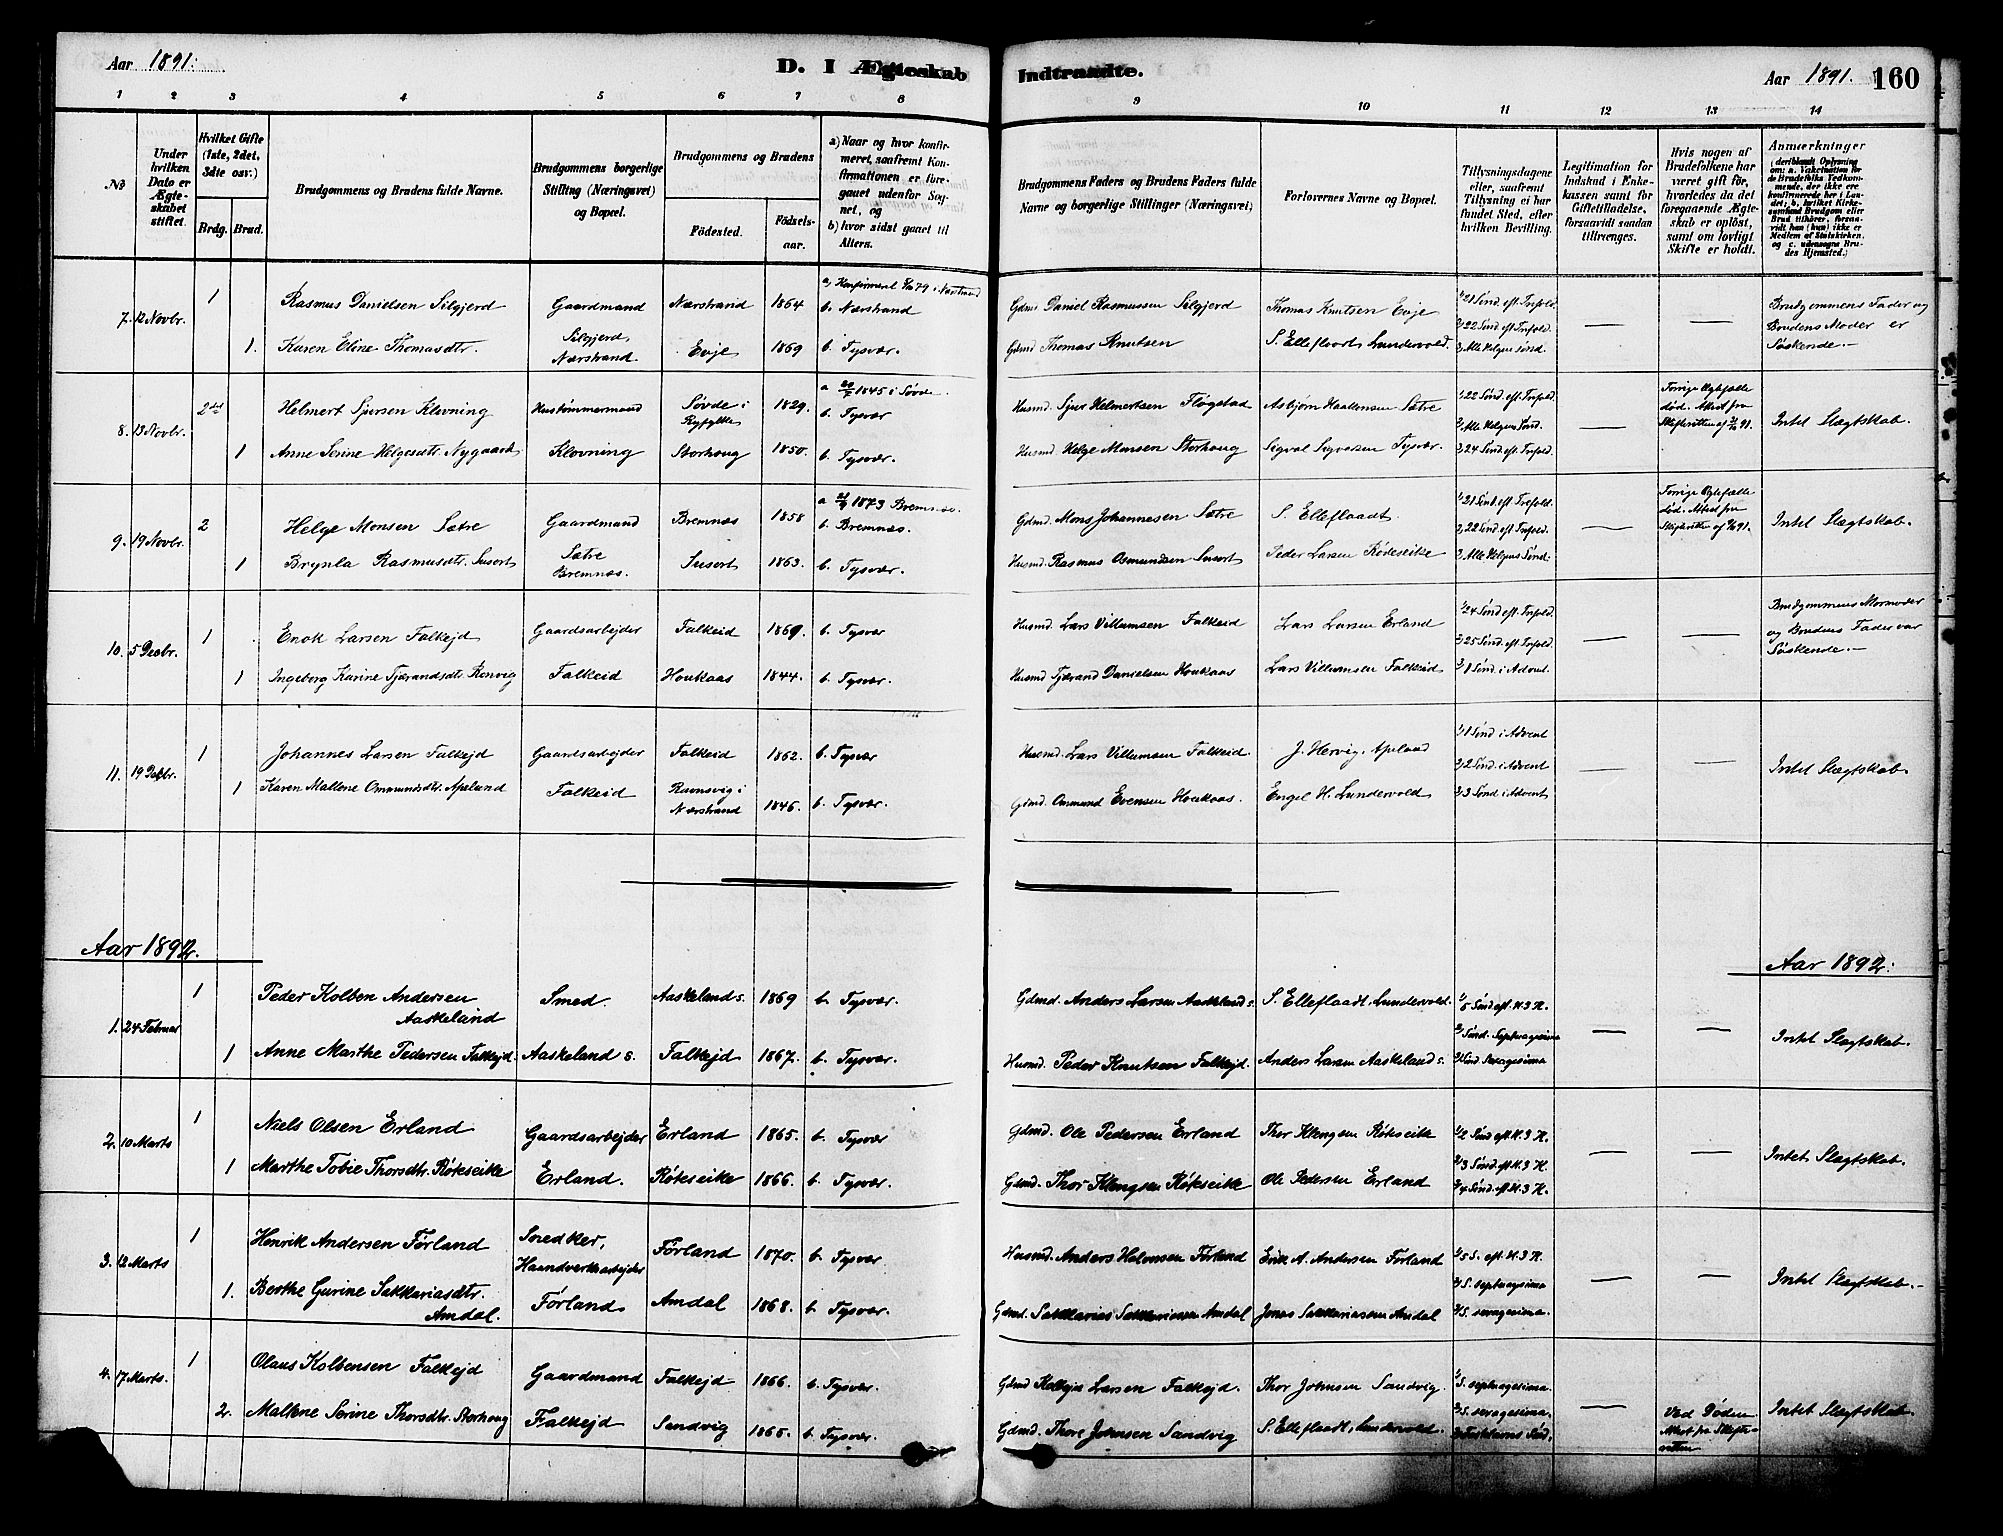 Aar 1891.
D. I Ægteskab Indtraadte.
Aar 1891. 160
1 2 3 4 5 6 7 8 9 10 11 12 13 14
No
Under hvilken Dato er Ægteskabet stiftet.
Hvilket Gifte (1ste, 2det, 3die osv.)
Brdg. Brud.
Brudgommens og Brudens fulde Navne.
Brudgommens borgerlige Stilling (Næringsvei) og Bopæl.
Brudgommens og Brudens
Födested.
Födselsaar.
a) Naar og hvor konfirmeret, saafremt Konfirmationen er foregaaet udenfor Sognet, og
b) hvor sidst gaaet til Alters.
Brudgommens Faders og Brudens Faders fulde Navne og borgerlige Stillinger (Næringsvei)
Forlovernes Navne og Bopæl.
Tillysningsdagene eller, saafremt Tillysning ei har fundet Sted, efter hvilken Bevilling.
Legitimation for Indskud i Enkekassen samt for Giftetilladelse, forsaavidt saadan tiltrænges.
Hvis nogen af Brudefolkene har været gift för, hvorledes da det foregaaende Ægteskab er oplöst, samt om lovligt Skifte er holdt.
Anmærkninger
7. 12 Novbr. 1 Rasmus Danielsen Silgjerd Gaardmand Nærstrand 1864 b. Nærstrand Gdmd Daniel Rasmussen Silgjerd Thomas Knutsen Evje 1, 21 Sønd eft. Trefold. Brudgommens Fader og
Silgjerd, 2, 22 Sønd eft. Trefold. — — Brudens Moder er
1. Karen Eline Thomasdtr. Nærstrand. Evje 1869 b. Tysvær. Gdmd Thomas Knutsen S. Elleflaadt, Lundervold. 3, Alle Helgens Sønd. Søskende.—
8. 13 Novbr. 2det Helmert Sjursen Klovning Hustømmermand Søvde i Ryfylke 1829. b. Tysvær Husmd. Sjur Helmertsen Flogstad Asbjørn Haakensen Sætre 1, 22 Sønd eft. Trefold. Forrige Ægtefælle død. Attest fra
2, Alle Helgens Sønd. — Intet Slægtskab.
1 Anne Serine Helgesdtr. Nygaard Klovning Storhoug 1850. b. Tysvær. Husmd. Helge Monsen Storhoug Sigval Sigvarsen Tysvær. 3, 24 Sønd eft. Trefold.
9. 19 Novbr. 2 Helge Monsen Sætre Gaardmand Bremnæs 1858 b. Bremnæs. Gdmd. Mons Johannesen Sætre S. Elleflaadt. 1, 21 Sønd. eft. Trefold. Forrige Ægtefælle død. Attest fra
Sætre 2, 22 Sønd. eft Trefold. — Intet Slægtskab.
1 Brynla Rasmusdtr. Susort Bremnæs. Susort 1863. b. Tysvær. Husmd. Rasmus Osmundsen Susort Peder Larsen 3, Alle Helgens Sønd.
10. 5 Decbr. 1 Enok Larsen Falkejd Gaardsarbejder Falkeid 1869. b. Tysvær Husmd. Lars Villumsen Falkeid Lars Larsen Erland 1, 24 Sønd eft. Trefold. Brudgommens Mormoder
2, 25 Sønd. eft Trefold. — — og Brudens Fader var
1 Ingeborg Karine Tjærandsdtr. Falkeid Houkaas 1844. b. Tysvær. Husmd Tjærand Danielsen Houkaas Lars Villumsen Falkeid 3, 1 Sønd i Advent. Søskende.—
11. 19 Decbr. 1 Johannes Larsen Falkejd Gaardsarbejder Falkeid 1862. b. Tysvær Husmd. Lars Villumsen Falkeid. J. Hervig, Apeland 1, 1 Sønd i Advent
2, 2 Sønd. i Advent — — Intet Slægtskab
1 Karen Mallene Ommundsdtr. Apeland Falkeid Ramsvig i Nærstrand 1846. b. Tysvær. Gdmd. Ommund Evensen Houkaas. Engel H. Lundervold 3, 3 Sønd i Advent
Aar 1892. Aar 1892.
1. 24 Februar 1 Peder Kolben Andersen Aaskeland Smed. Aaskeland s. 1869 b. Tysvær. Gdmd. Anders Larsen Aaskeland s. S. Elleflaadt, Lundervold. 1/ 5 Sønd eft. H. 3 K.
2/ Sønd. Septuagesima — — Intet Slægtskab.
1 Anne Marthe Pedersen Falkejd. Aaskeland s. Falkejd 1867. b. Tysvær. Husmd. Peder Knutsen Falkejd. Anders Larsen Aaskeland s. 3/ Sønd Sexagesima
2. 10 Marts 1 Niels Olsen Erland Gaardsarbejder Erland 1865. b. Tysvær Gdmd. Ole Pedersen Erland Thor Klengsen Røkseike 1/2 Sønd eft. H. 3 K.
2/3 Sønd. eft. H. 3 K. — — Intet Slægtskab.
1 Marthe Tobie Thorsdtr. Røkseike Erland. Røkseike 1866. b. Tysvær. Gdmd. Thor Klengsen Røkseike Ole Pedersen Erland 3/4 Sønd. eft H. 3 K.
3. 12 Marts 1 Henrik Andersen Førland Snedker, Førland 1870. b. Tysvær Husmd. Anders Førland Erik A. Andersen Førland 1/5 S. eft. H. 3 K.
Haandverksarbejder 2/ S. septuagesima — — Intet Slægtskab.
1. Berthe Gurine Sakkariasdtr. Amdal. Førland Amdal 1868. b. Tysvær. Gdmd. Sakkarias Sakkariassen Amdal Jonas Sakkariassen Amdal 3/ S. sexagesima.
4. 17 Marts. 1 Olaus Kolbensen Falkejd Gaardmand Falkejd 1866. b. Tysvær. Gdmd Larsen Falkejd. Thor Johnsen Sandvig. 1/ S. septuagesima.
2/ S. sexagesima. — Ved Døden Intet Slægtskab
2. Mallene Serine Thorsdtr. Storhoug Falkejd Sandvig 1865. b. Tysvær. Gdmd. Thore Johnsen Sandvig S. Elleflaadt, Lundervold. 3/ Fastelavns Sønd. Attest fra Skifteretten